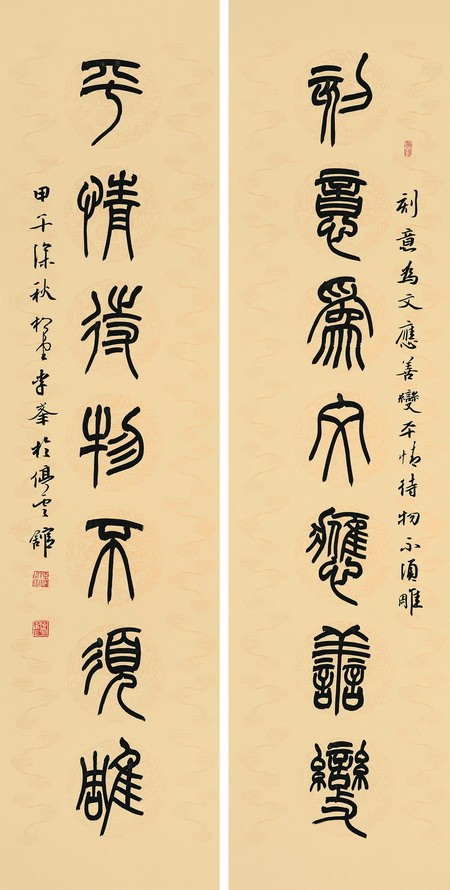 刻意為文應善變平情待物不須雕
刻意為文應善變
平情待物不須雕
甲午深秋峯於停雲館